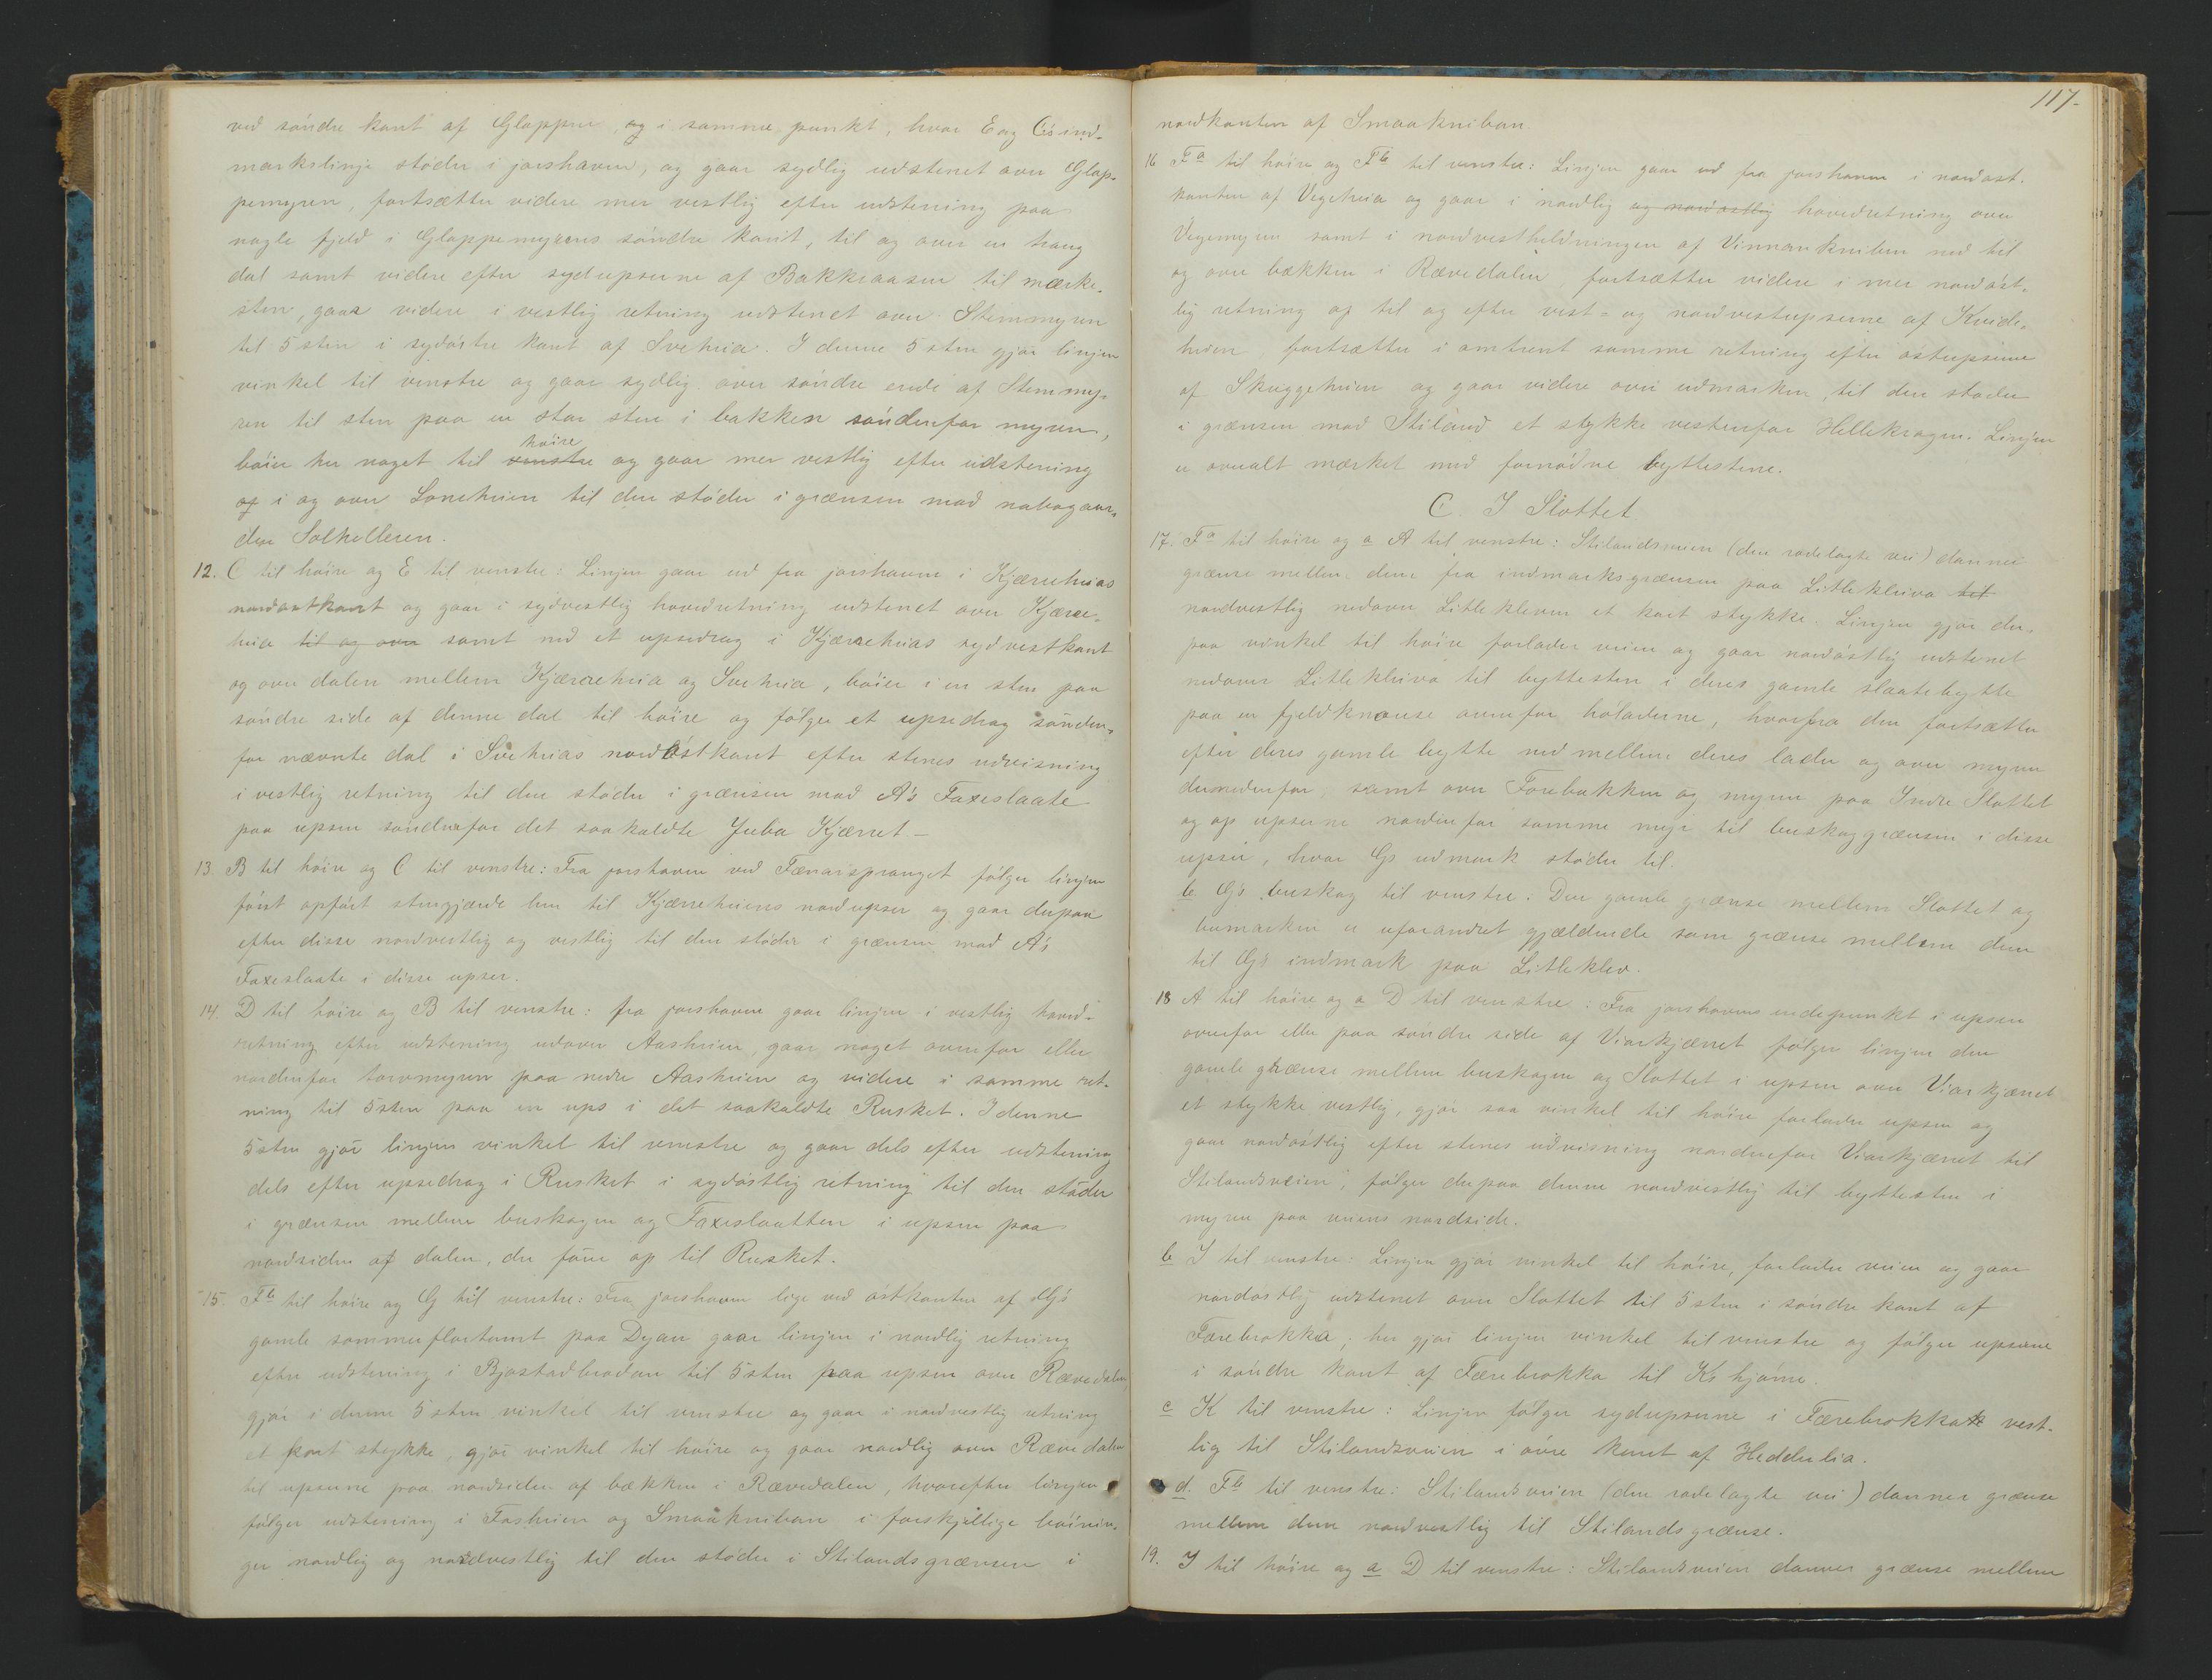 ved söndre kant af Gloppen, og i samme punkt, hvor E og C's ind-
markslinje stöder i jorshaven, og gaar sydlig udstenet over Glop-
pemyren, fortsætter videre mer vestlig efter udstening paa
nogle fjeld i Gloppemyrens söndre kant, til og over en trang
dal samt videre efter sydupserne af Bakkeaasen til mærke-
sten, gaar videre i vestlig retning udstenet over Stemmyren
til 5 sten i sydöstre kant af Sveheia. I denne 5 sten gjör linjen
vinkel til venstre og gaar sydlig over söndre ende af Stemmy-
ren til sten paa en stor sten i bakken söndenfor myren,
höire
böier her noget til venstre og gaar mer vestlig efter udstening
op i og over Loneheien til den stöder i grænsen mod nabogaar-
den Solhelleren.
12. C til höire og E til venstre: Linjen gaar ud fra jorshaven i Kjærreheias
nordostkant og gaar i sydvestlig hovedretning udstenet over Kjærre-
heia til og over samt ned et upsedrag i Kjærreheias sydvestkant
og over dalen mellem Kjærreheia og Sveheia, böier i en sten paa
söndre side af denne dal til höire og fölger et upsedrag sönden-
for nævnte dal i Sveheias nordöstkant efter stenes udvisning
i vestlig retning til den stöder i grænsen mod A's Faxeslaate
paa upsen söndenfor det saakaldte Juba Kjærret -
13. B til höire og C til venstre: Fra jorshaven ved Fænarspranget fölger linjen
först opfört stengjærde hen til Kjærreheiens nordupser og gaar derpaa
efter disse nordvestlig og vestlig til den stöder i grænsen mod A's
Faxeslaate i disse upser.
14. D til höire og B til venstre: fra jorshaven gaar linjen i vestlig hoved-
retning efter udstening udover Aasheien, gaar noget ovenfor eller
nordenfor torvmyren paa nedre Aasheien og videre i samme ret-
ning til 5 sten paa en ups i det saakaldte Rusket. I denne
5 sten gjör linjen vinkel til venstre og gaar dels efter udstening
dels efter upsedrag i Rusket i sydöstlig retning til den stöder
i grænsen mellem buskogen og Faxeslaatten i upsen paa
nordsiden af dalen, der förer op til Rusket.
15. Fb til höire og G til venstre: Fra jorshaven lige ved östkanten af G's
gamle sommerflortomt paa Dyan gaar linjen i nordlig retning
efter udstening i Bjostadbrodan til 5 sten paa upsen over Rævedalen,
gjör i denne 5 sten vinkel til venstre og gaar i nordvestlig retning
et kort stykke, gjör vinkel til höire og gaar nordlig over Rævedalen
til upserne paa nordsiden af bækken i Rævedalen, hvorefter linjen
fölger udstening i Fosheien og Smaakniban i forskjellige böinin-
ger nordlig og nordvestlig til den stöder i Stilandsgrænsen i
117-
nordkanten af Smaakniban
16 Fa til höire og Fb til venstre: Linjen gaar ud fra jorshaven i nordost-
kanten af Vegeheia og gaar i nordlig og nordostlig hovedretning over
Vegemyren samt i nordvestheldningen af Vinnankniben ned til
og over bækken i Rævedalen, fortsætter videre i mer nordöst-
lig retning op til og efter vest- og nordvestupserne af Kvide-
heien, fortsætter i omtrent samme retning efter östupserne
af Skuggeheien og gaar videre over udmarken, til den stöder
i grænsen mod Stiland et stykke vestenfor Hellekrogen. Linjen
er overalt mærket med fornödne byttestene.
C. I Slottet
17. Fa til höire og a A til venstre: Stilandsveien (den rodelagte vei) danner
grænse mellem dem fra indmarksgrænsen paa Litlekleiva til
nordvestlig nedover Litlekleven et kort stykke. Linjen gjör der-
paa vinkel til höire forlader veien og gaar nordöstlig udstenet
nedover Litlekleiva til byttesten i deres gamle slaatebytte
paa en fjeldknause ovenfor höladerne, hvorfra den fortsætter
efter deres gamle bytte ned mellem deres lader og over myren
dernedenfor, samt over Forebakken og myren paa Indre Slottet
og op upserne nordenfor samme myr til buskoggrænsen i disse
upser, hvor Gs udmark stöder til.
b G's buskog til venstre. Den gamle grænse mellem Slottet og
bumarken er uforandret gjældende som grænse mellem dem
til G's indmark paa Litleklev.
18 A til höire og a D til venstre: Fra jorshavens endepunkt i upsen
ovenfor eller paa söndre side af Viarkjærret fölger linjen den
gamle grænse mellem buskogen og Slottet i upsen over Viarkjærret
et stykke vestlig, gjör saa vinkel til höire forlader upsen og
gaar nordöstlig efter stenes udvisning nordenfor Viarkjærret til
Stilandsveien, fölger derpaa denne nordvestlig til byttesten i
myren paa veiens nordside.
b I til venstre: Linjen gjör vinkel til höire, forlader veien og gaar
nordöstlig udstenet over Slottet til 5 sten i söndre kant af
Færebrokka; her gjör linjen vinkel til venstre og fölger upserne
i söndre kant af Færebrokka til K's hjörne.
c K til venstre: Linjen fölger sydupserne i Færebrokka vest-
lig til Stilandsveien i övre kant af Hedderlia.
d. Fb til venstre: Stilandsveien (den rodelagte vei) danner grænse
mellem dem nordvestlig til Stilandsgrænse.
19. I til höire og a D til venstre: Stilandsveien danner grænse mellem